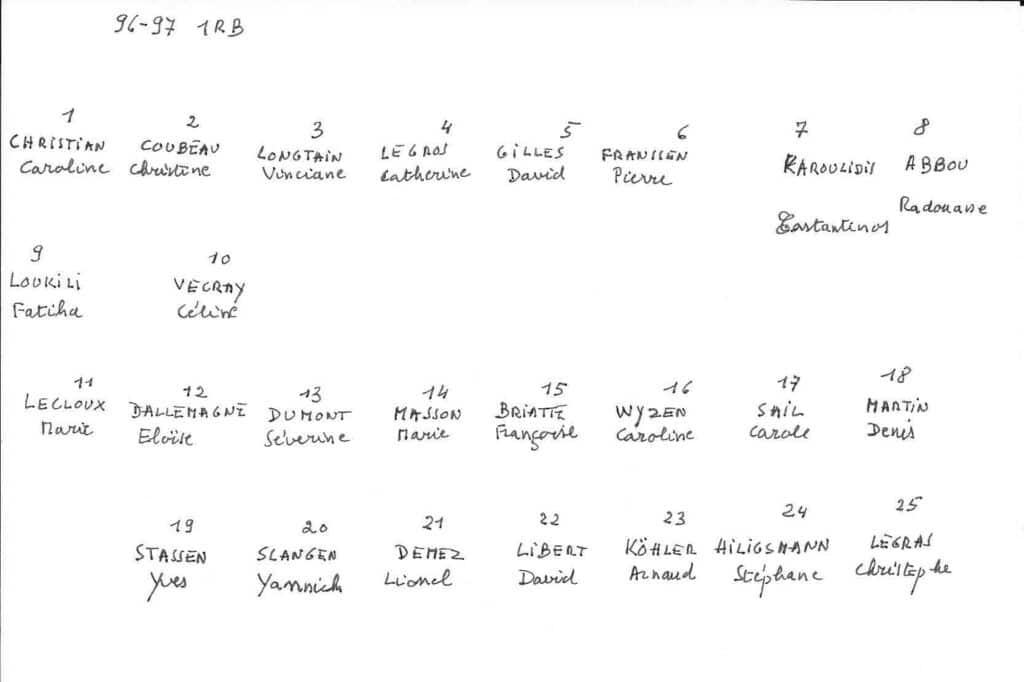 96-97 1RB
1 2 3 4 5 6 7 8
CHRISTIAN COUBEAU LONGTAIN LEGROS GILLES FRANSSEN KAROULIDIS ABBOU
Caroline Christine Vinciane Catherine David Pierre Costantinos Radouane
9 10
LOUKILI VECRAY
Fatiha Céline
11 12 13 14 15 16 17 18
LECLOUX DALLEMAGNE DUMONT MASSON WYZEN SAIL MARTIN
Marie Eloïse Séverine Marie Françoise Caroline Carole Denis
19 20 21 22 23 24 25
STASSEN SLANGEN DEMEZ LIBERT KÖHLER HILIGSMANN LEGRAS
Yves Yannick Lionel David Arnaud Stéphane Christophe